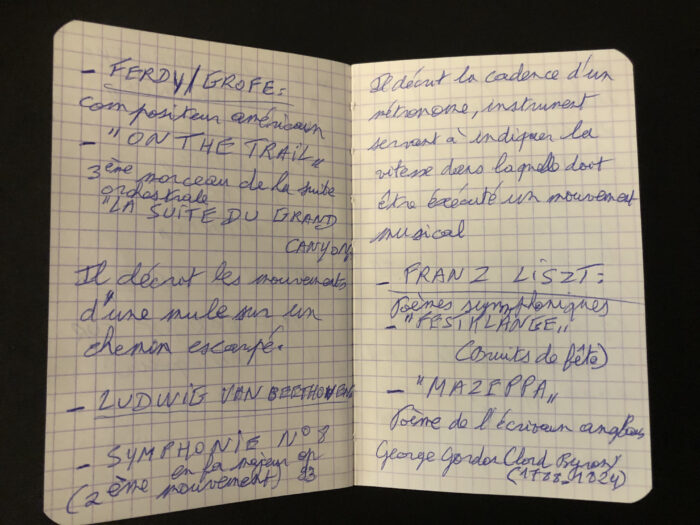 - FERDY/GROFE:
compositeur américain
- "ON THE TRAIL"
3ème morceau de la suite
orchestrale
"LA SUITE DU GRAND
CANYON
Il décrit les mouvements
d'une mule sur un
chemin escarpé.
- LUDWIG VAN BEETHOVEN:
- SYMPHONIE N° 8
en fa majeur op
(2ème mouvement) 93
Il décrit la cadence d'un
métronome, instrument
servant à indiquer la
vitesse dans laquelle doit
être éxécuté un mouvement
musical
- FRANZ LISZT:
Poèmes symphoniques
- "FESTKLÄNGE"
(Bruits de fête)
- "MAZEPPA"
Poème de l'écrivain anglais
George Gordon (Lord Byron)
(1788-1824)